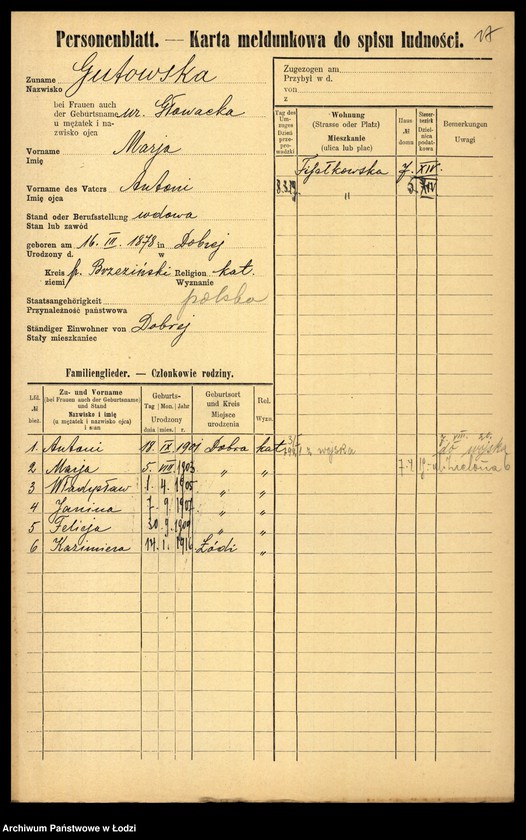 Personenblatt. — Karta meldunkowa do spisu ludności.
17
Zuname Gutowska
Nazwisko
bei Frauen auch
der Geburtsname ur. Głowacka
u mężatek i na-
zwisko ojca
Vorname Marja
Imię
Vorname des Vaters Antoni
Imię ojca
Stand oder Berufsstellung wdowa
Stan lub zawód
geboren am 16. III. 1878 in Dobrej
Urodzony d. w
Kreis p. Brzeziński Religion kat.
ziemi Wyznanie
Staatsangehörigkeit polska
Przynależność państwowa
Ständiger Einwohner von Dobrej
Stały mieszkaniec
Zugezogen am
Przybył w d.
von
z
Tag des Um-zuges Dzień prze-prowadzki
Wohnung
(Strasse oder Platz)
Mieszkanie
(ulica lub plac)
Haus № domu
Steuer-bezirk Dzielnica podatkowa
Bemerkungen
Uwagi
Fijałkowska 7. XIV.
8.3.19. " 5. XIV
Familienglieder. — Członkowie rodziny.
Lfd. № bież.
Zu- und Vorname
(bei Frauen auch der Geburtsname)
und Stand
Nazwisko i imię
(u mężatek i nazwisko ojca)
i stan
Geburts-
Tag Mon. Jahr
Urodzony
dnia mies. r.
Geburtsort
und Kreis
Miejsce
urodzenia
Rel.
Wyzn.
1. Antoni 18. IX. 1901 Dobra kat. z wojska 7. VIII. 20. do wojska
2 Marja 5. VIII 1903 " " 7. 4. 19. ul. Zielona 6
3 Władysław 1. 4. 1905 " "
4 Janina 7. 9. 1907 " "
5 Felicja 30. 9. 1909 " "
6 Kazimiera 14. 1. 1916 Łódź "
Archiwum Państwowe w Łodzi